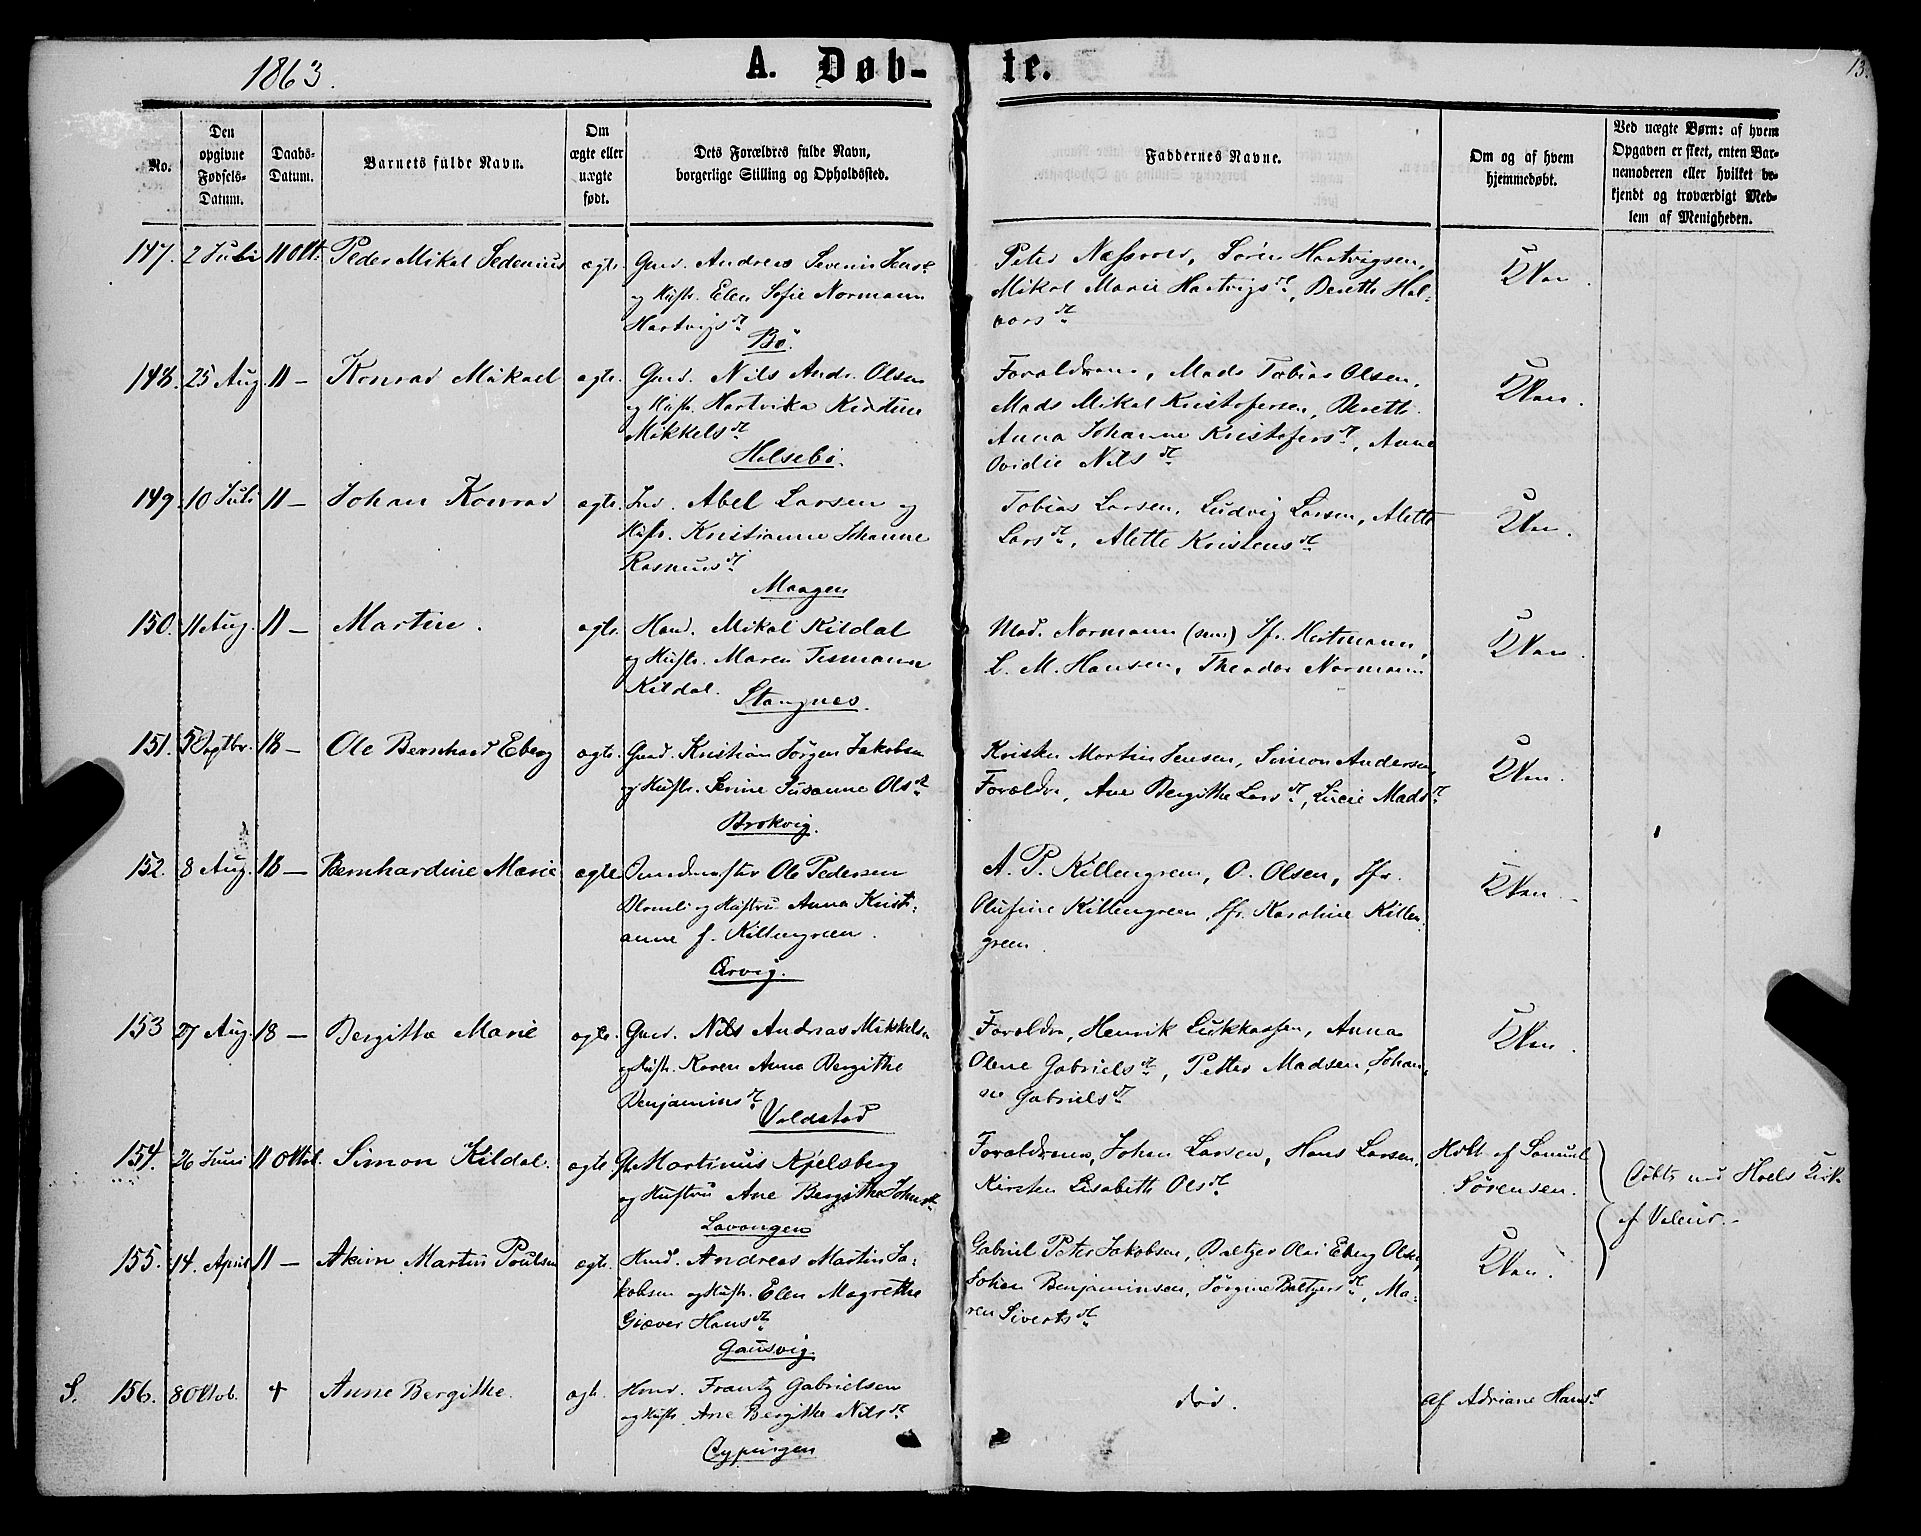 1863.
A. Døb-
te.
13.
No.
Den
opgivne
Fødsels-
Datum.
Daabs-
Datum.
Barnets fulde Navn.
Om
ægte eller
uægte
født.
Dets Forældres fulde Navn,
borgerlige Stilling og Opholdssted.
Faddernes Navne.
Om og af hvem
hjemmedøbt.
Ved uægte Børn: af hvem
Opgaven er skeet, enten Bar-
nemoderen eller hvilket be-
kjendt og troværdigt Med-
lem af Menigheden.
147. 2 Juli 11 Okt. Peder Mikal Sedenius ægte.
Gmd. Andreas Severin Jens
og Hustr. Elen Sofie Normann
Hartvigsdt.
Bø.
Peter Næsvold, Søren Hartvigsen,
Mikal Marie Hartvigsdt, Berette Hal-
vorsdt.
148. 25 Aug. 11 – Konrad Mikael ægte.
Gmd. Nils Andr. Olsen
og Hustr. Hartvika Kirstine
Mikkelsdt
Halsebø.
Forældrene, Mads Tobias Olsen,
Mads Mikal Kristofersen, Berett
Anna Johanne Kristofersdt, Anne
Ovidie Nilsdt
149. 10 Juli 11 – Johan Konrad ægte.
Ind. Abel Larsen og
Hustr. Kristianne Johanne
Rasmusdt
Maagen
Tobias Larsen, Ludvig Larsen, Alette
Larsdt, Alette Kristensdt
150. 11 Aug. 11 – Martin. ægte.
Hand. Mikal Kildal
og Hustr. Maren Normann
Kildal.
Stangnes.
Mad. Normann (sen.) Jfr. Hartmann,
L. M. Hansen, Theodor Normann
151. 5 Septbr. 18 – Ole Bernhard Eberg ægte.
Gmd. Kristian Jørgen Jakobsen
og Hustr. Serine Susanne Olsdt
Brokvig.
Kristen Martin Jensen, Simon Andersen,
Forældre, Ane Bergithe Larsdt, Lucie Madsdt
152. 8 Aug. 18 – Bernhardine Marie ægte
Ole Pedersen
og Hustru Anna Kristi-
anne f. Killengreen.
Ørvig.
A. P. Killengreen, O. Olsen, Jfr.
Olufine Killengreen, Jfr. Karoline Killen-
green.
153 27 Aug. 18 – Bergitha Marie ægte.
Gmd. Nils Andreas Mikkelsen
og Hustr. Karen Anna Bergithe
Benjaminsdt
Voldstad
Forældre, Henrik Lukkassen, Anna
Olene Gabrielsdt, Petter Madsen, Johan-
ne Gabrielsdt
154. 26 Juni 11 Oktob. Simon Kildal. ægte
Martinus Kjelsberg
og Hustru Ane Bergithe Johnsdt.
Lavangen
Forældrene, Johan Larsen, Hans Larsen,
Kirsten Lisabeth Olsdt
Hdbt af Samuel
Sørensen.
Døbte ved Hols Kirk
af Valeur.
155. 14. April 11 – Akim Martin Poulsen ægte.
Hmd. Andreas Martin Ja-
kobsen og Hustr. Elen Magrethe
Giæver Hansdt
Gausvig.
Gabriel Peter Jakobsen, Baltzer Olai Eberg Olsen,
Johan Benjaminsen, Jørgine Baltzersdt, Ma-
ren Sivertsdt
S. 156. 8 Oktob. + Anne Bergithe. ægt.
Hmd. Frantz Gabrielsen
og Hustr. Ane Bergithe Nilsdt
død.
af Adriane Hansdt